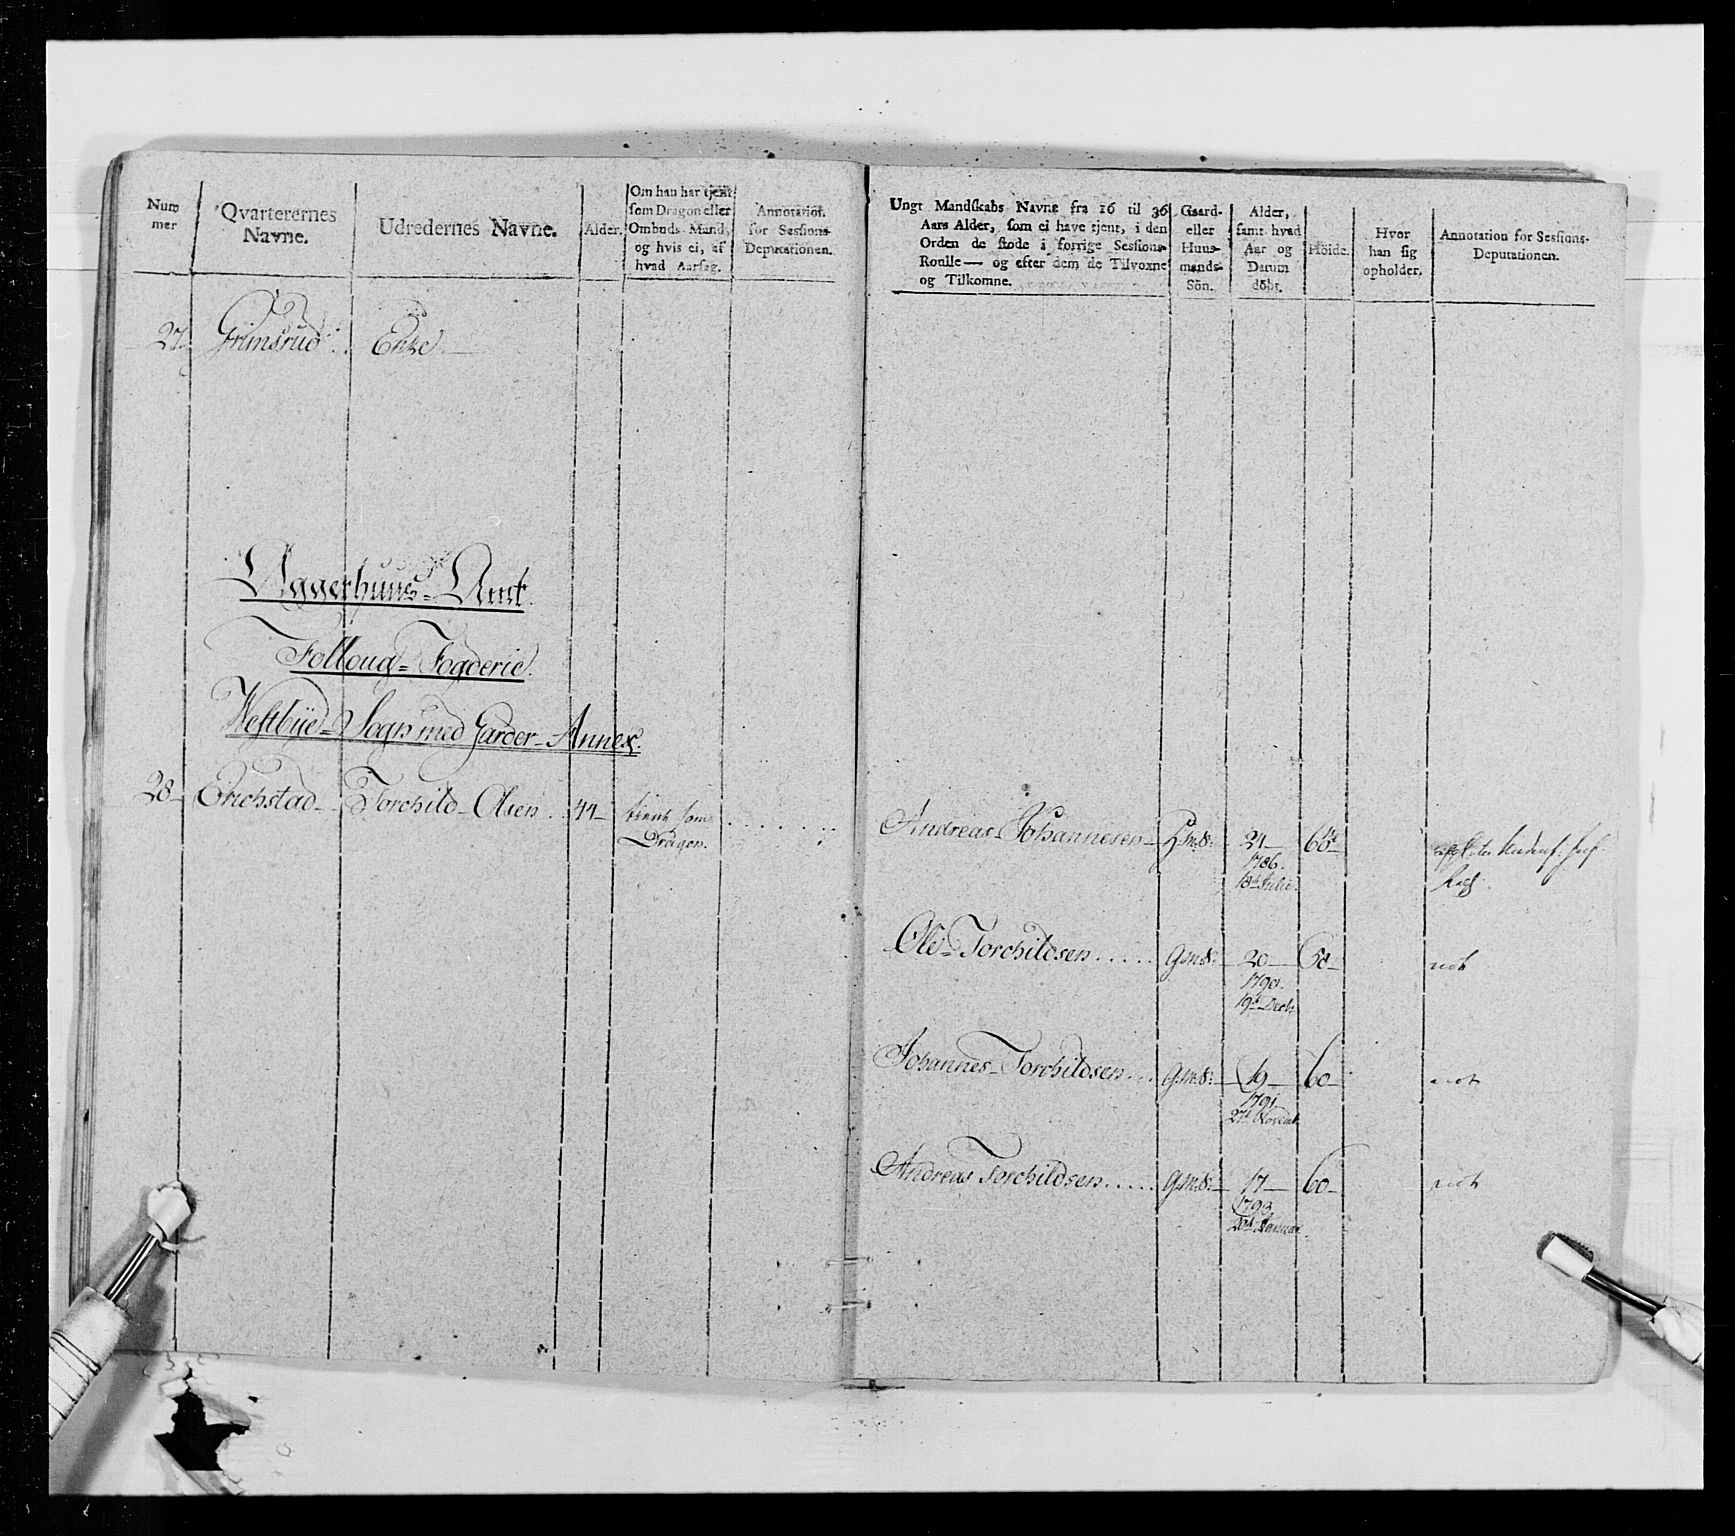 Num
mer
Qvarterernes
Navne.
Udredernes Navne.
Alder.
Om han har tjent
som Dragon eller
Ombuds-Mand,
og hvis ei, af
hvad Aarsag.
Annotation
for Sessions-
Deputationen.
27. Grimsrud . . Enke.
Aggerhuus-Amt.
Folloug-Fogderie.
Westbye-Sogn med Garder-Annex.
28 Erichstad Torchild Olsen . . 44 tient som
Dragon.
Ungt Mandskabs Navne fra 16 til 36
Aars Alder, som ei have tjent, i den
Orden de stode i forrige Sessions-
Roulle — og efter dem de Tilvoxne
og Tilkomne.
Gaard-
eller
Huus-
mands-
Sön.
Alder,
samt hvad
Aar og
Datum
döbt.
Höide.
Hvor
han sig
opholder.
Annotation for Sessions-
Deputationen.
Andreas Johannesen H.m.S. 24
1786.
18de Julii.
Ole Torchildsen . . . . . G.m.S. 20
1790.
19de Decb.
Johannes Torchildsen . . . G.m.S. 19 60
1791
27d Novemb.
Andreas Torchildsen . . . . . G.m.S. 17 60
1793
20d Januar.